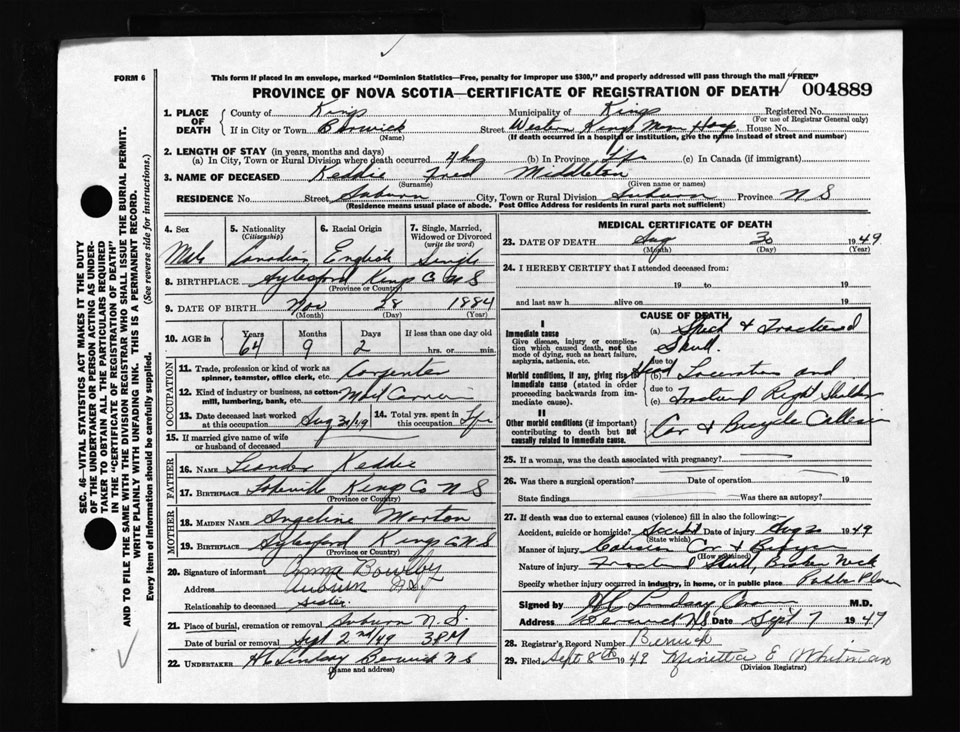 FORM 6
This form if placed in an envelope, marked "Dominion Statistics—Free, penalty for improper use $300," and properly addressed will pass through the mail "FREE"
PROVINCE OF NOVA SCOTIA—CERTIFICATE OF REGISTRATION OF DEATH 004889
SEC. 46—VITAL STATISTICS ACT MAKES IT THE DUTY
OF THE UNDERTAKER OR PERSON ACTING AS UNDER-
TAKER TO OBTAIN ALL THE PARTICULARS REQUIRED
IN THE "CERTIFICATE OF REGISTRATION OF DEATH"
AND TO FILE THE SAME WITH THE DIVISION REGISTRAR WHO SHALL ISSUE THE BURIAL PERMIT.
WRITE PLAINLY WITH UNFADING INK. THIS IS A PERMANENT RECORD.
Every item of information should be carefully supplied. (See reverse side for instructions.)
1. PLACE OF DEATH County of Kings Municipality of Kings Registered No.
(For use of Registrar General only)
If in City or Town Berwick Street Western Kings Mem Hosp. House No.
(Name) (If death occurred in a hospital or institution, give the name instead of street and number)
2. LENGTH OF STAY (in years, months and days)
(a) In City, Town or Rural Division where death occurred (b) In Province Life (c) In Canada (if immigrant)
3. NAME OF DECEASED Keddie Fred Middleton
(Surname) (Given name or names)
RESIDENCE No. Street Auburn City, Town or Rural Division Auburn Province N S
(Residence means usual place of abode. Post Office Address for residents in rural parts not sufficient)
4. Sex Male
5. Nationality (Citizenship) Canadian
6. Racial Origin English
7. Single, Married, Widowed or Divorced (write the word) Single
8. BIRTHPLACE Aylesford Kings Co N S
(Province or Country)
9. DATE OF BIRTH Nov 28 1884
(Month) (Day) (Year)
10. AGE in Years 64 Months 9 Days 2 If less than one day old hrs. or min.
OCCUPATION
11. Trade, profession or kind of work as spinner, teamster, office clerk, etc. Carpenter
12. Kind of industry or business, as cotton mill, lumbering, bank, etc.
13. Date deceased last worked at this occupation Aug 30/49
14. Total yrs. spent in this occupation Life
15. If married give name of wife or husband of deceased
FATHER
16. NAME Leander Keddie
17. BIRTHPLACE Lakeville Kings Co N S
(Province or Country)
MOTHER
18. MAIDEN NAME Angeline Morton
19. BIRTHPLACE Aylesford Kings Co N S
(Province or Country)
20. Signature of informant Anna Bowlby
Address Auburn N.S.
Relationship to deceased Sister
21. Place of burial, cremation or removal Auburn N.S.
Date of burial or removal Sept 2nd/49 3 PM
22. UNDERTAKER H C Lindsay Berwick N S
(Name and address)
MEDICAL CERTIFICATE OF DEATH
23. DATE OF DEATH Aug 30 1949
(Month) (Day) (Year)
24. I HEREBY CERTIFY that I attended deceased from:
19 to 19
and last saw h alive on 19
CAUSE OF DEATH
I
Immediate cause
Give disease, injury or complication which caused death, not the mode of dying, such as heart failure, asphyxia, asthenia, etc.
(a) Shock & Fractured Skull.
due to
Morbid conditions, if any, giving rise to immediate cause (stated in order proceeding backwards from immediate cause).
(b) Head Lacerations and
due to
(c) Fractured Right Shoulder
II
Other morbid conditions (if important) contributing to death but not causally related to immediate cause.
Car & Bicycle Collision
25. If a woman, was the death associated with pregnancy?
26. Was there a surgical operation? Date of operation 19
State findings Was there an autopsy?
27. If death was due to external causes (violence) fill in also the following:
Accident, suicide or homicide? Accident Date of injury Aug 30 1949
(State which)
Manner of injury Collision Car & Bicycle
(How sustained)
Nature of injury Fractured Skull, Broken Neck
Specify whether injury occurred in industry, in home, or in public place Public Place
Signed by M.D.
Address Berwick N.S. Date Sept 7 1949
28. Registrar's Record Number Berwick
29. Filed Sept 8th 1949 Minetta E. Whitman
(Division Registrar)